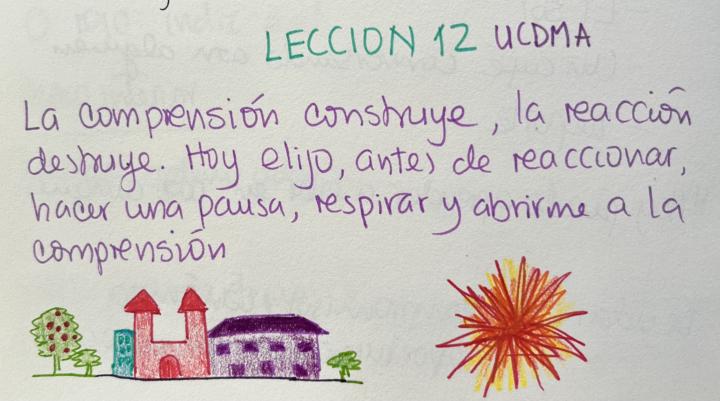 LECCION 12 UCDMA
La comprensión construye, la reacción
destruye. Hoy elijo, antes de reaccionar,
hacer una pausa, respirar y abrirme a la
comprensión